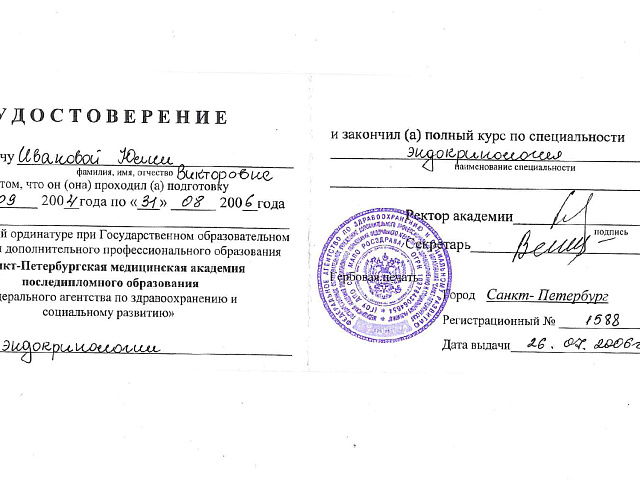 УДОСТОВЕРЕНИЕ
чу Ивановой Юлии
фамилия, имя, отчество Викторовне
том, что он (она) проходил (а) подготовку
09 2004 года по «31» 08 2006 года
й ординатуре при Государственном образовательном
и дополнительного профессионального образования
нкт-Петербургская медицинская академия
последипломного образования
дерального агентства по здравоохранению и
социальному развитию»
эндокринологии
и закончил (а) полный курс по специальности
эндокринология
наименование специальности
Ректор академии
подпись
Секретарь
Гербовая печать
Город Санкт-Петербург
Регистрационный № 1588
Дата выдачи 26. 07. 2006г